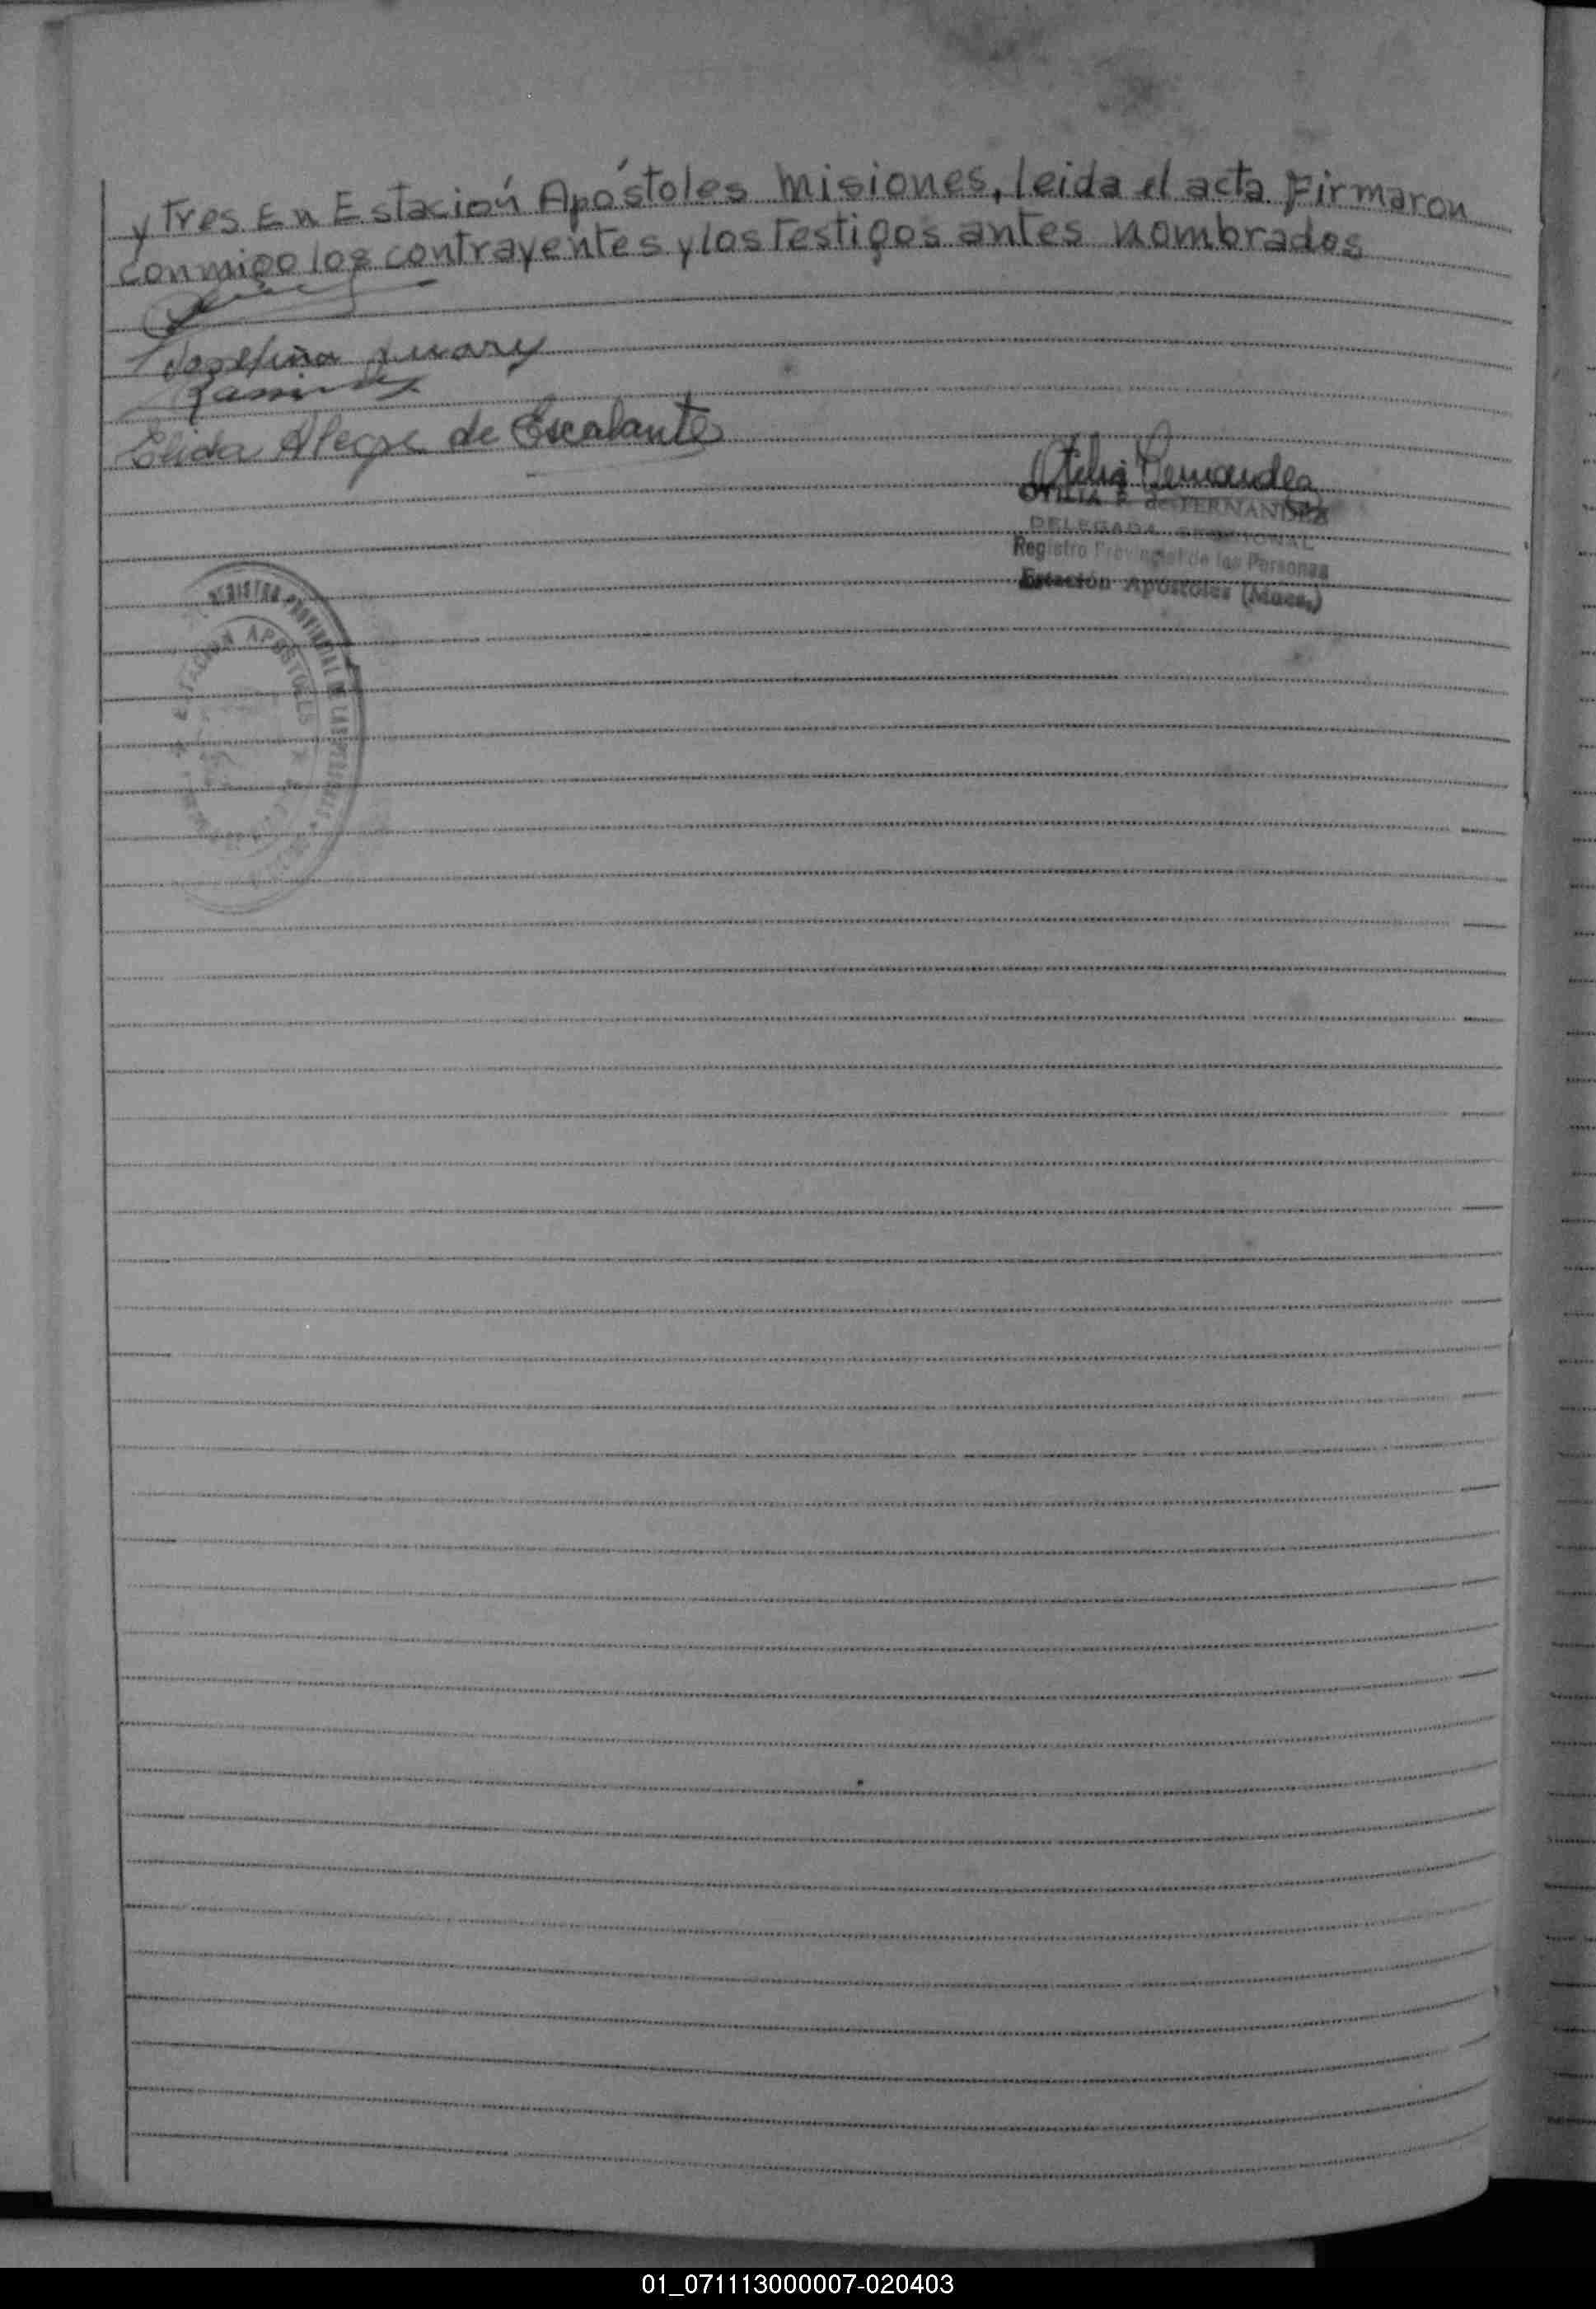 y Tres En Estación Apóstoles Misiones, leida el acta Firmaron
conmigo los contrayentes y los Testigos antes nombrados
Josefina
Ramirez
Elida Alegre de Escalante
Otilia Fernandez
OTILIA F. de FERNANDEZ
DELEGADA SECCIONAL
Registro Provincial de las Personas
Estación Apóstoles (Mnes.)
REGISTRO PROVINCIAL DE LAS PERSONAS
ESTACION APOSTOLES
01_071113000007-020403